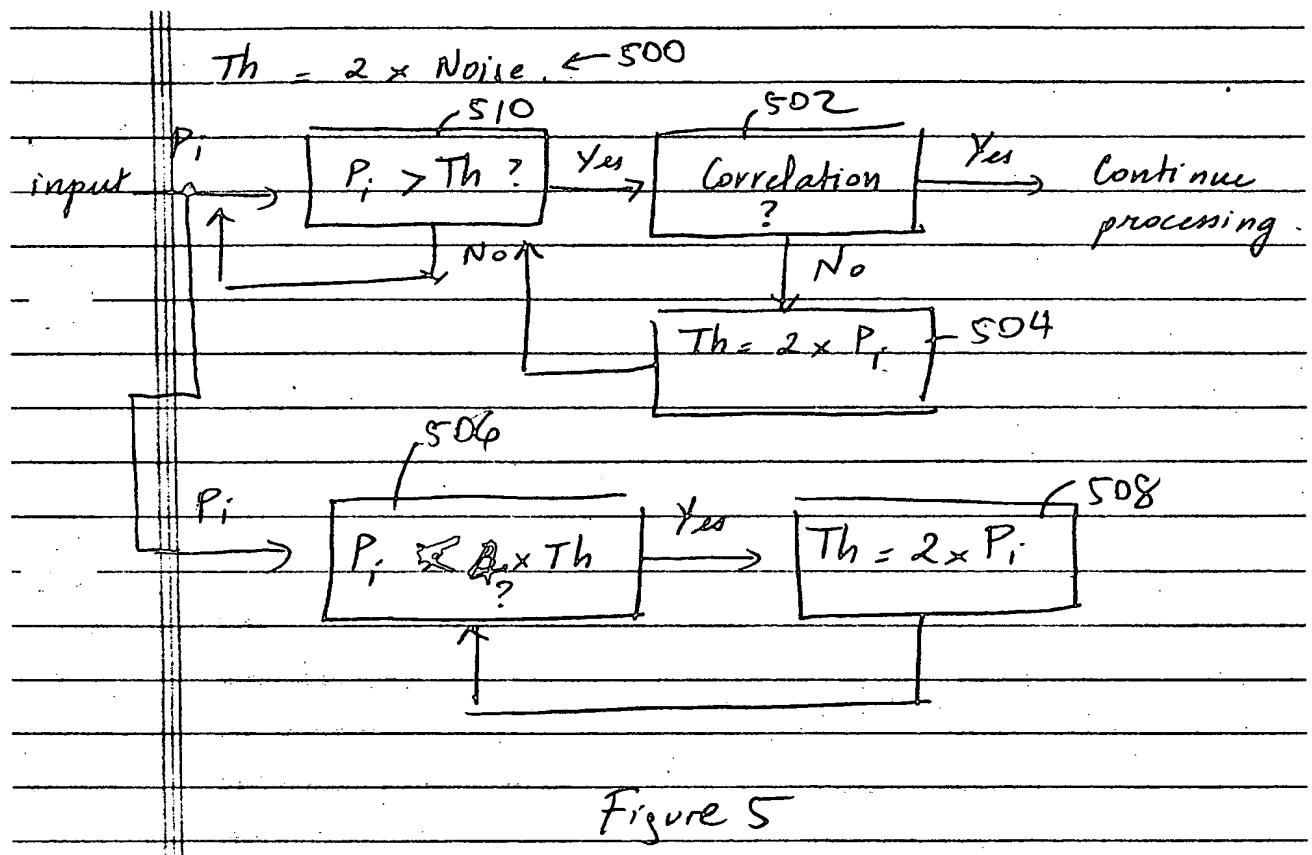 Th = 2 x Noise. ← 500
510
502
Pi
input
Pi > Th ?
Yes
Correlation
?
Yes
Continue
processing.
No
No
Th = 2 x Pi
504
506
Pi
Pi x Th
?
Yes
508
Th = 2 x Pi
Figure 5